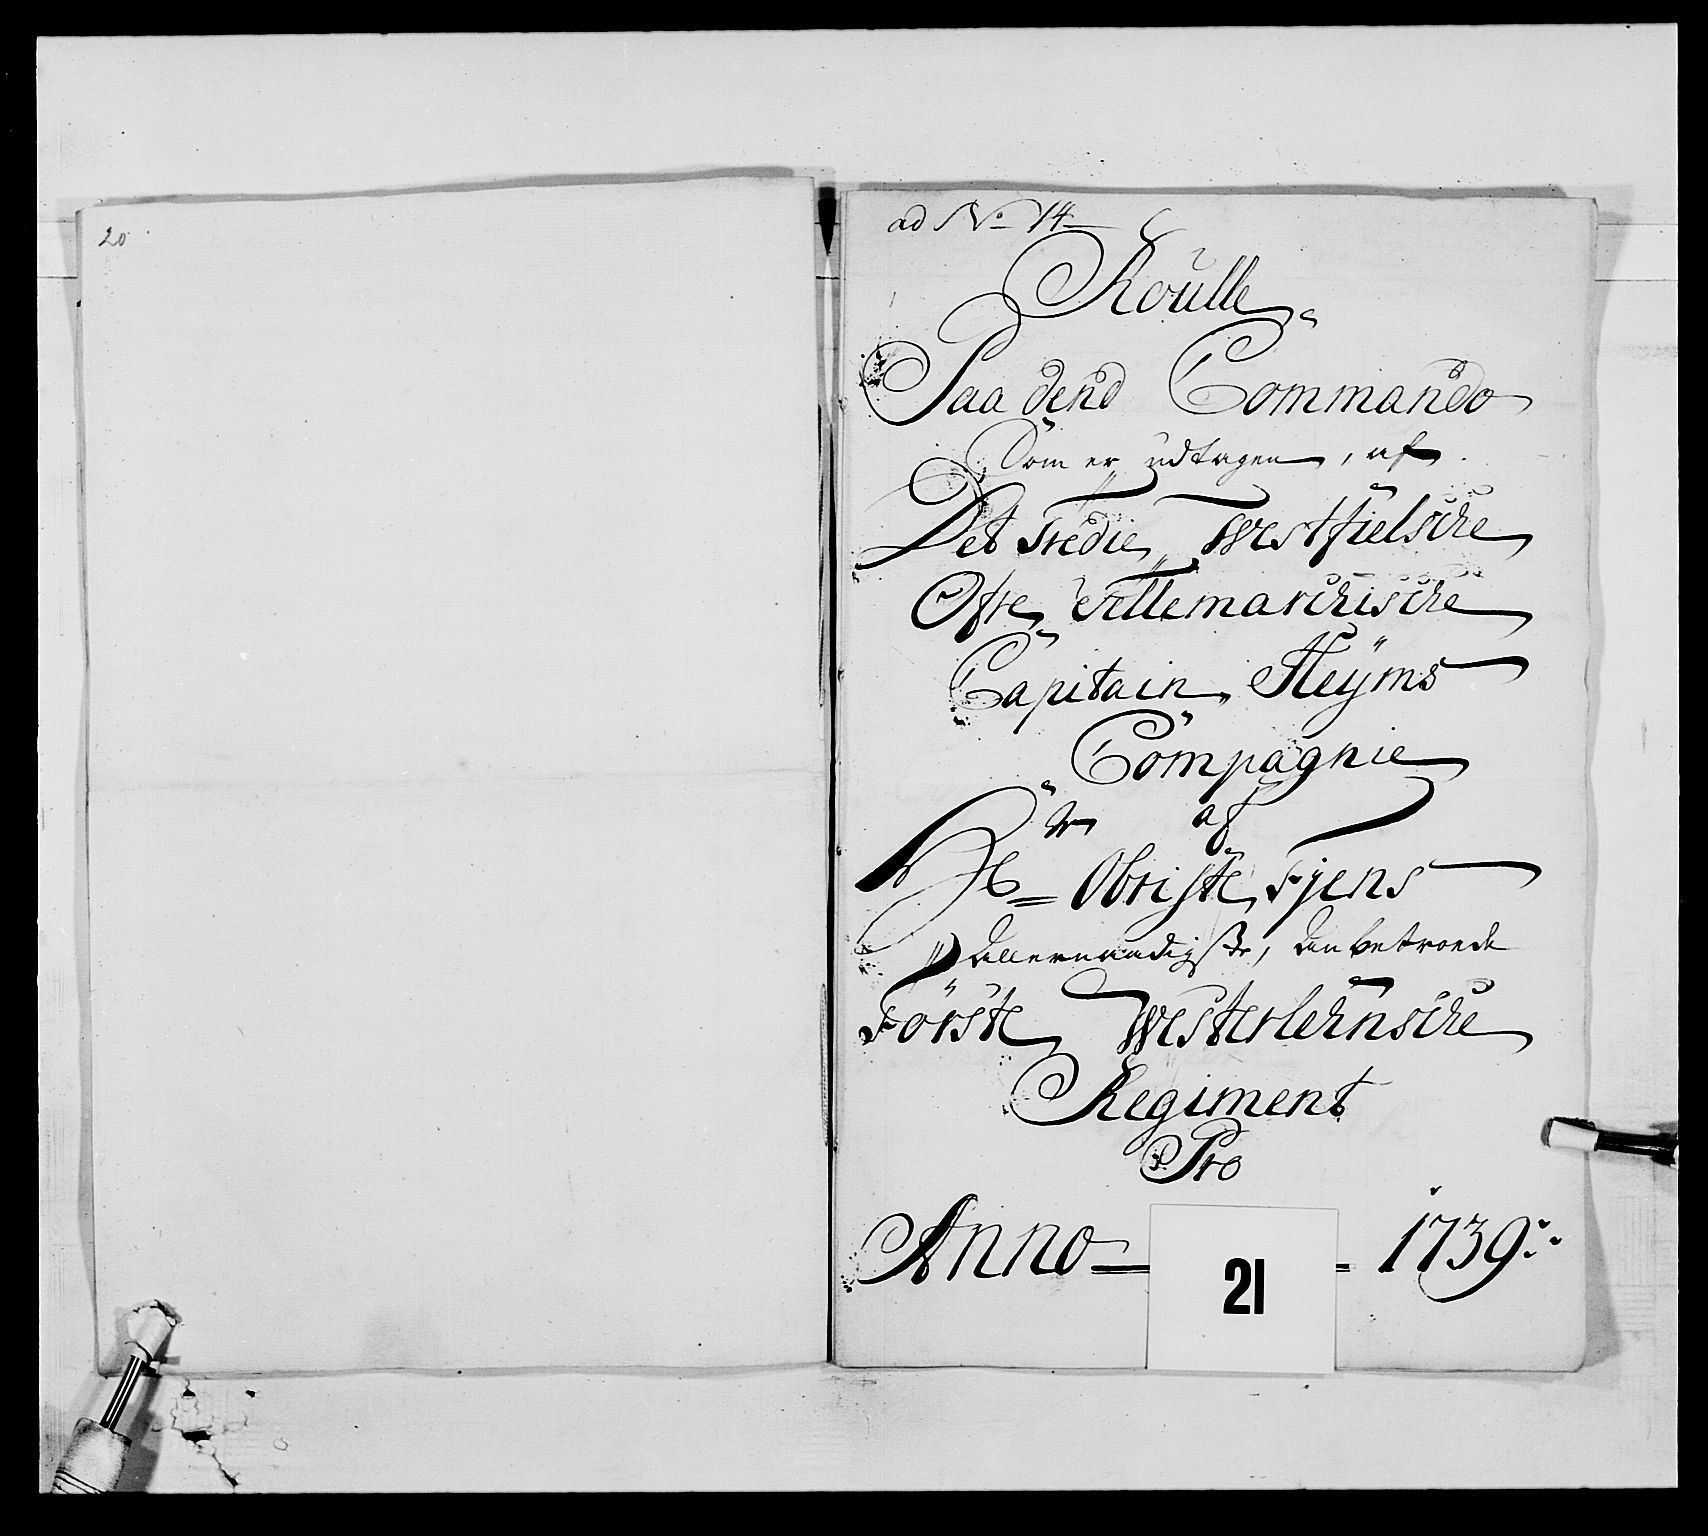 20
ad No 14
Roulle
Paa dend Commando
Som er udtagen, af
Det Tredie Westfielsche
Øfre Tellemarchische
Capitain Heÿms
Compagnie
af
Hr Obriste Fyens
allernaadigste, anbetroede
Förste Westerlehnsche
Regiment
Pro
Anno 1739
21